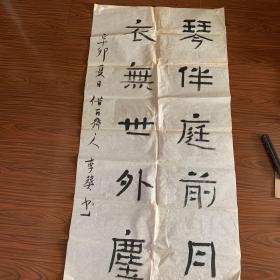 琴伴庭前月
衣無世外塵
辛卯夏日
李葵书